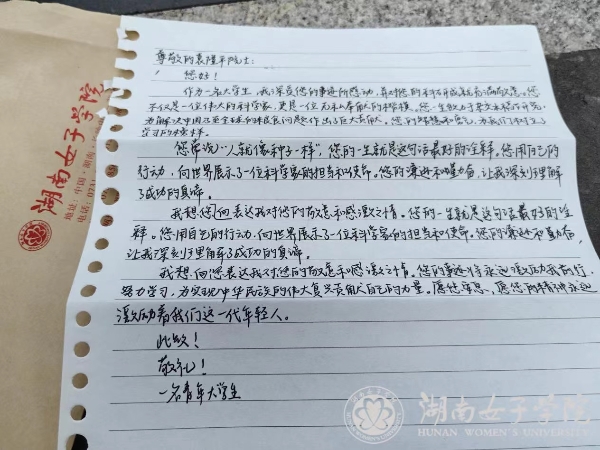 尊敬的袁隆平院士：
您好！
作为一名大学生，我深受您的事迹所感动，并对您的科研成就充满敬意。您
不仅是一位伟大的科学家，更是一位无私奉献的楷模。您一生致力于杂交水稻研究，
为解决中国乃至全球的粮食问题作出了巨大贡献。您的智慧和勇气，为我们树立了
学习的榜样。
您常说"人就像种子一样"，您的一生就是这句话最好的诠释。您用自己的
行动，向世界展示了一位科学家的担当和使命。您的谦逊和勤奋，让我深刻理解
了成功的真谛。
我想您向表达我对您的敬意和感激之情。您的一生就是这句话最好的诠
释。您用自己的行动，向世界展示了一位科学家的担当和使命。您的谦逊不勤奋，
让我深刻理解了成功的真谛。
我想向您表达我对您的敬意和感激之情。您的事迹将永远激励我前行，
努力学习，为实现中华民族的伟大复兴贡献自己的力量。愿您安息，愿您的精神永远
激励着我们这一代年轻人。
此致！
敬礼！
一名青年大学生
湖南女子学院
地址：中国·湖南
电话：0731
湖南女子学院
HUNAN WOMEN'S UNIVERSITY